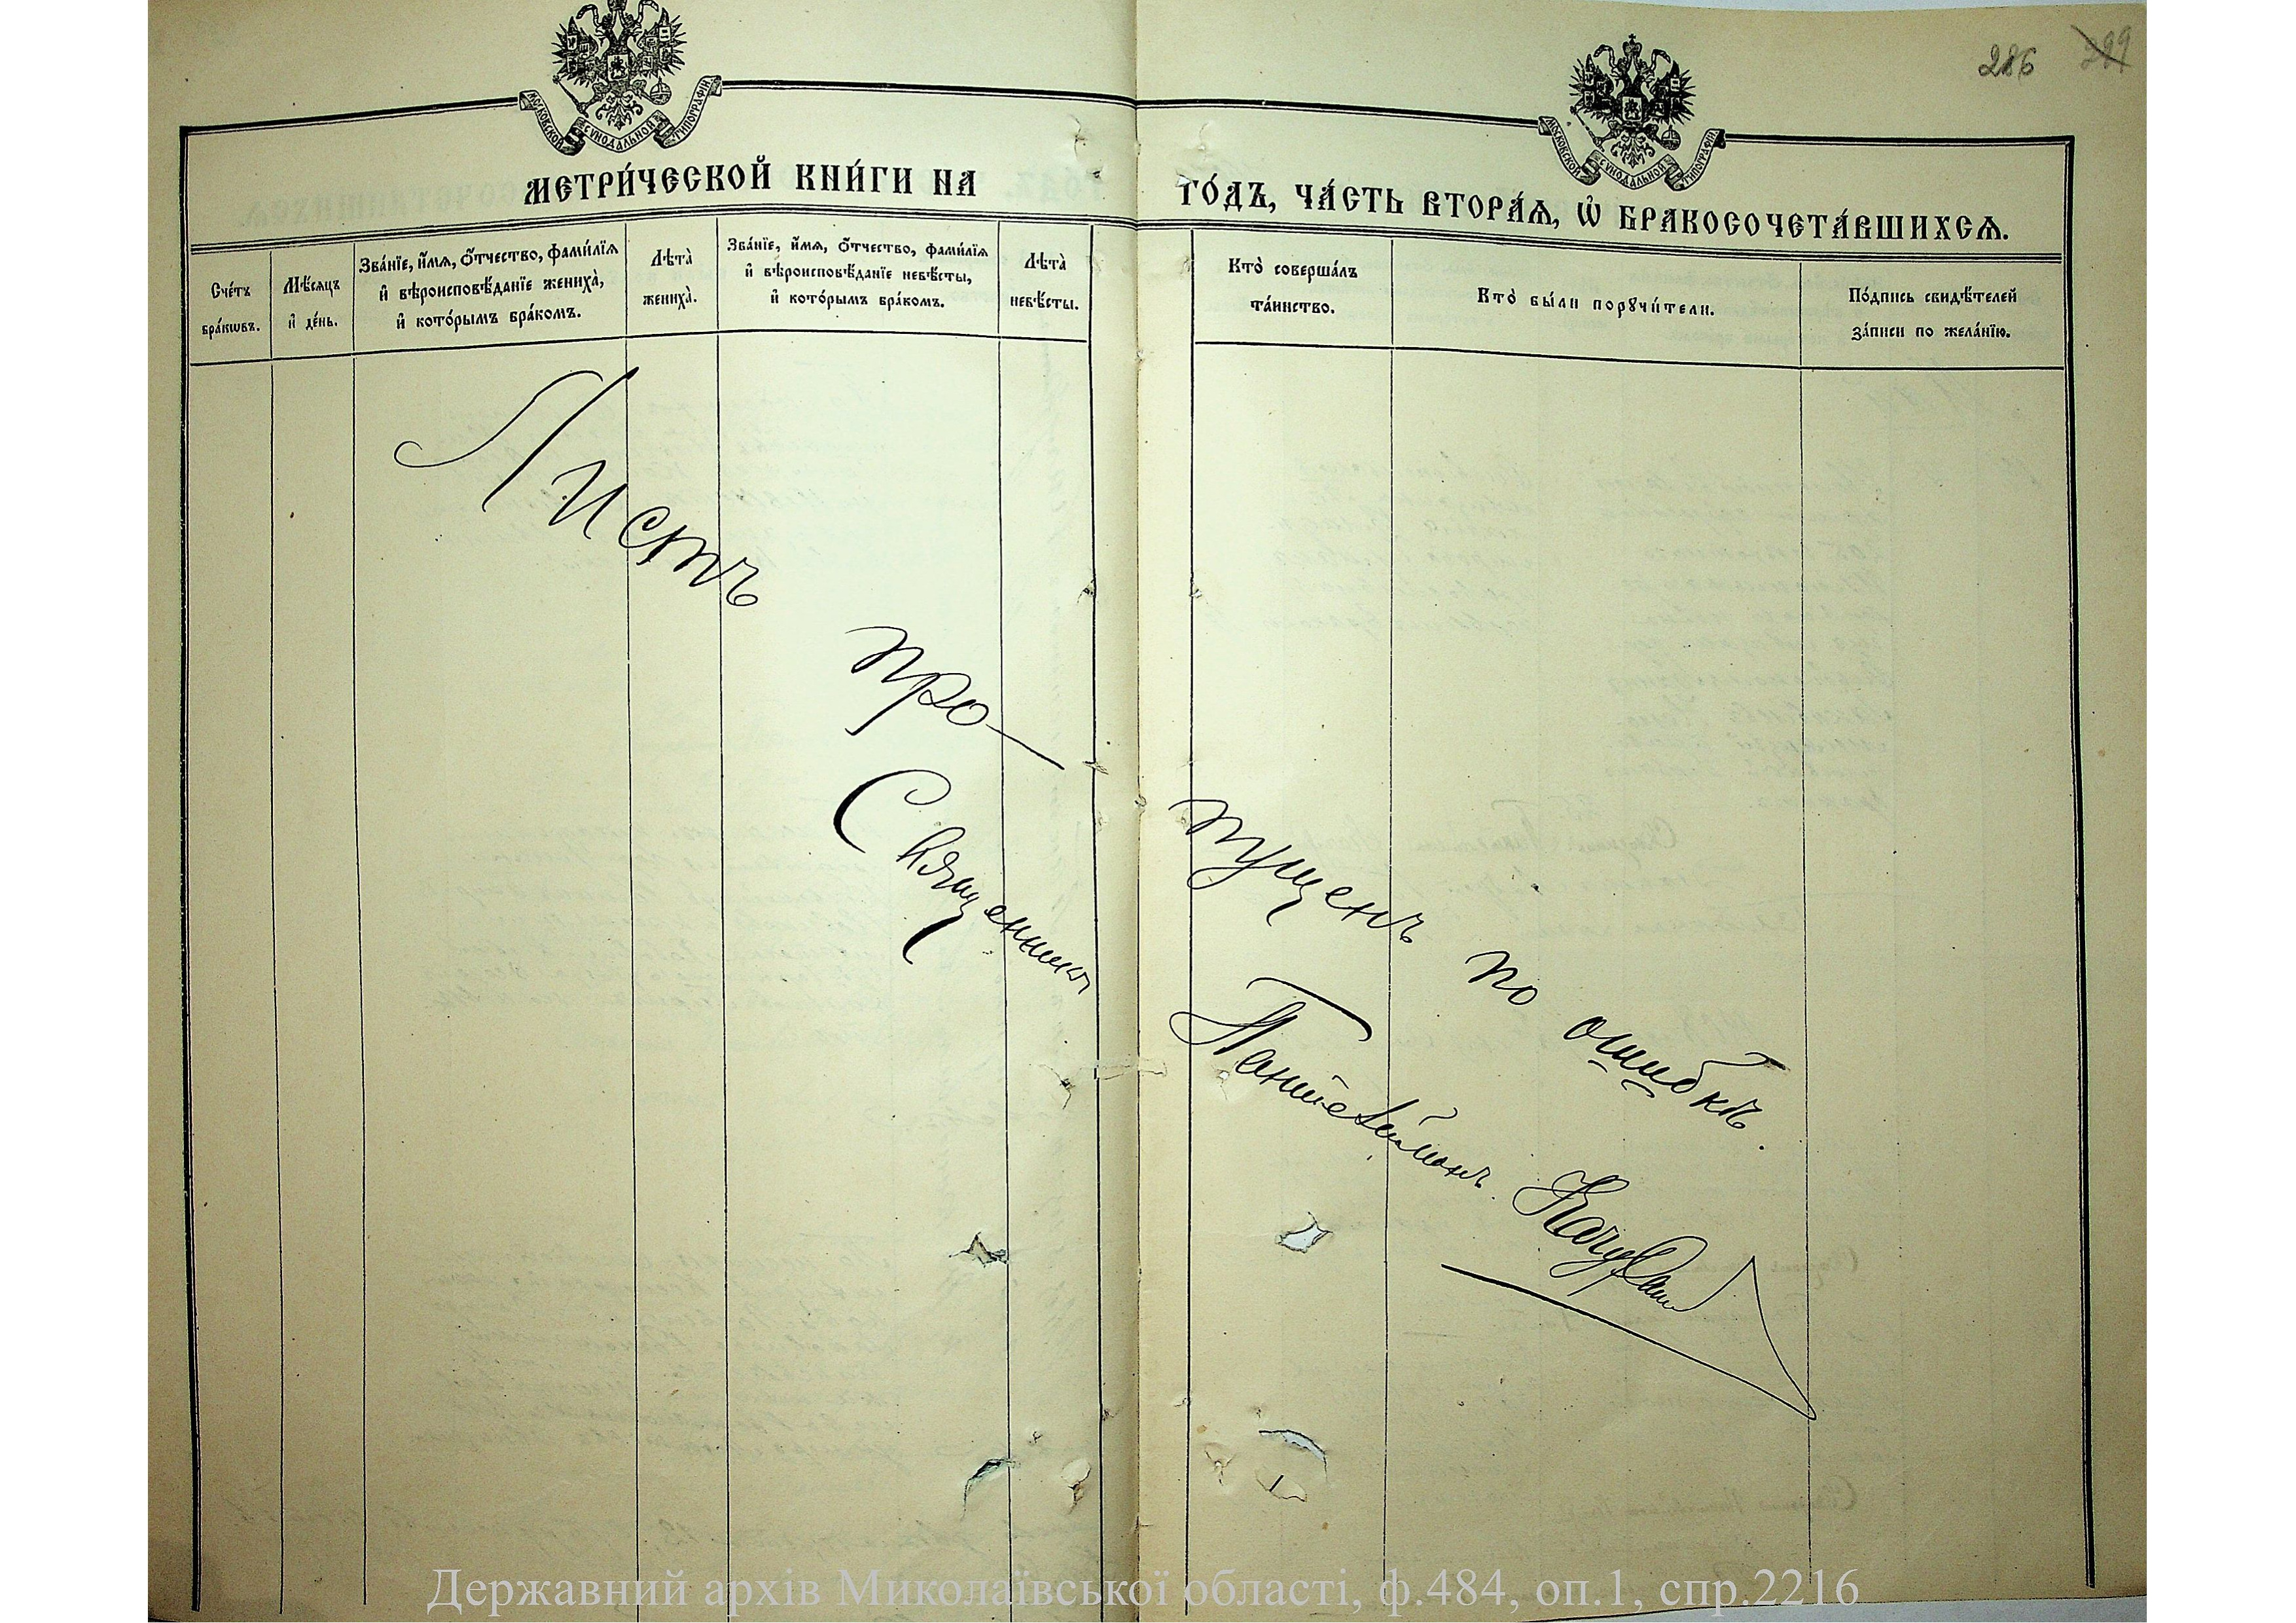 286 299
МОСКОВСКОЙ СѴНОДАЛЬНОЙ ТИПОГРАФІИ
МОСКОВСКОЙ СѴНОДАЛЬНОЙ ТИПОГРАФІИ
МЕТРИ́ЧЕСКОЙ КНИ́ГИ НА ГО́ДЪ, ЧА́СТЬ ВТОРА́Ѧ, Ѽ БРАКОСОЧЕТА́ВШИХСѦ.
Сче́тъ
бра́кѡвъ.
Мѣ́сяцъ
и҆ де́нь.
Зва́нїе, и҆́мѧ, ѻ҆́тчество, фами́лїѧ
и҆ вѣроисповѣ́данїе жениха̀,
и҆ кото́рымъ бра́комъ.
Лѣта̀
жениха̀.
Зва́нїе, и҆́мѧ, ѻ҆́тчество, фами́лїѧ
и҆ вѣроисповѣ́данїе невѣ́сты,
и҆ кото́рымъ бра́комъ.
Лѣта̀
невѣ́сты.
Кто̀ соверша́лъ
та́инство.
Кто̀ бы́ли порꙋчи́тели.
По́дпись свидѣ́телей
за́писи по жела́нїю.
Листъ про-
пущенъ по ошибкѣ.
Священникъ Пантелеймонъ
Державний архів Миколаївської області, ф.484, оп.1, спр.2216